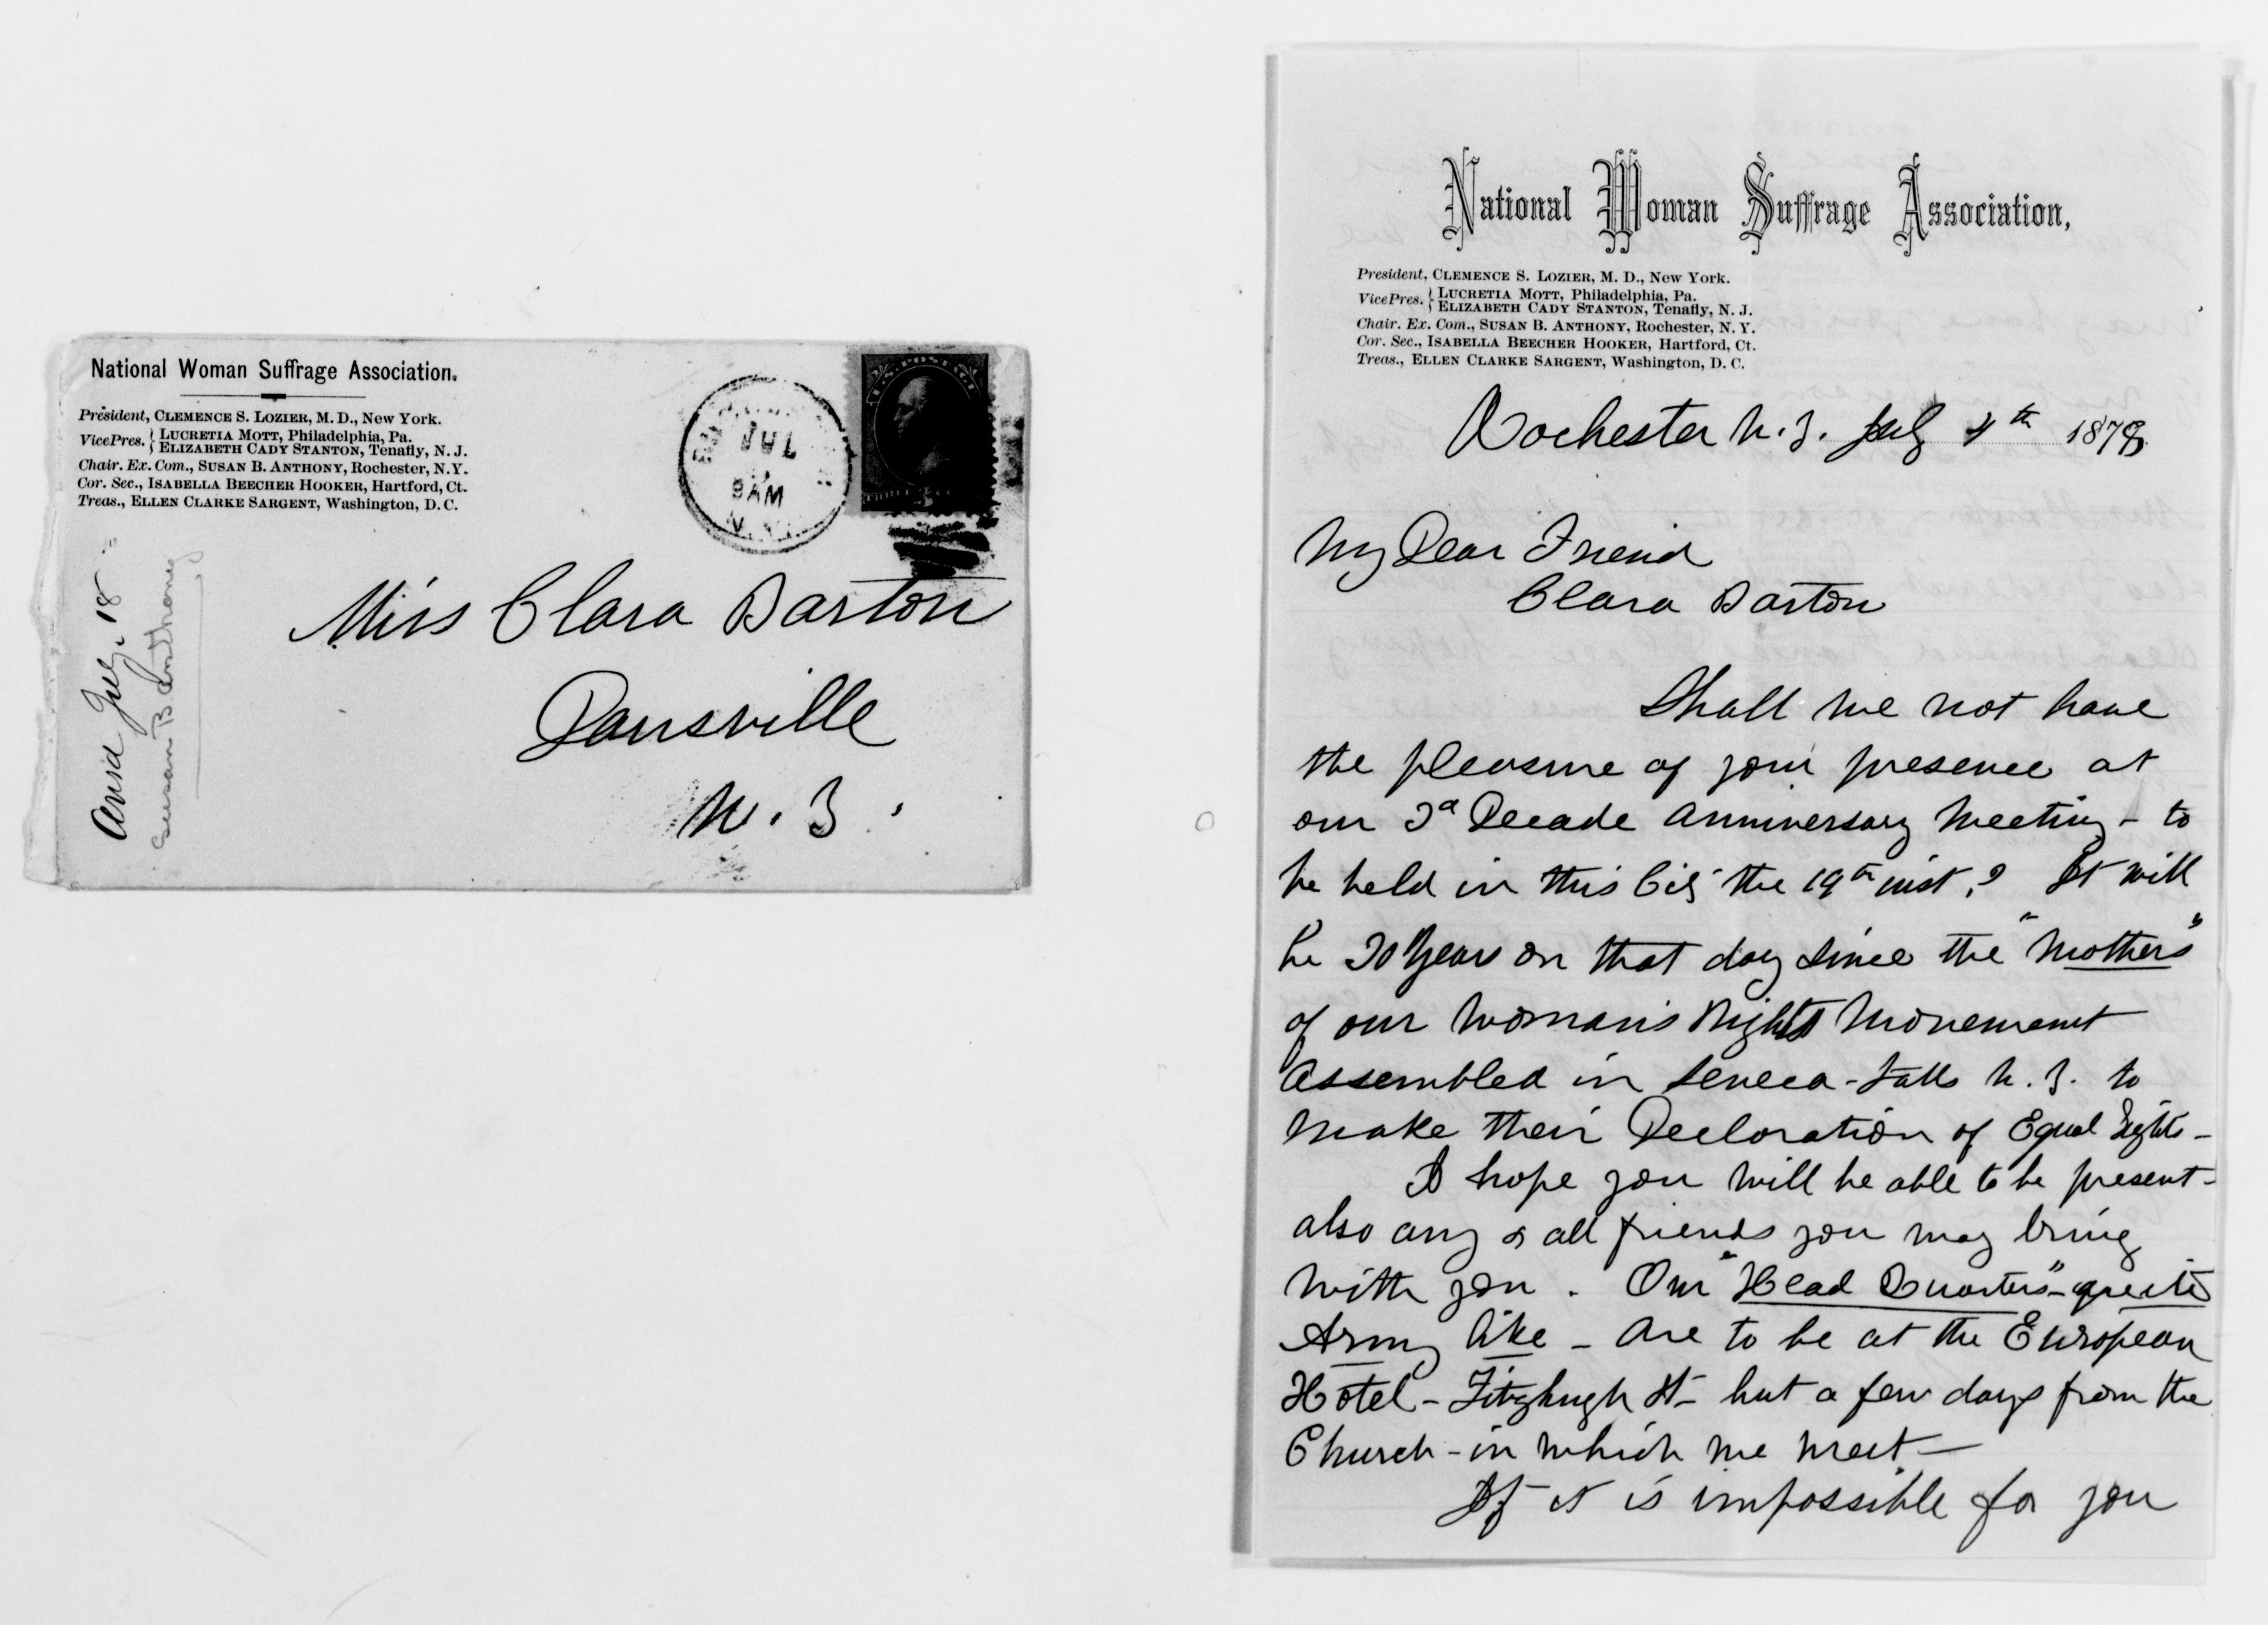 National Woman Suffrage Association.
President, CLEMENCE S. LOZIER, M. D., New York.
Vice Pres. { LUCRETIA MOTT, Philadelphia, Pa.
ELIZABETH CADY STANTON, Tenafly, N. J.
Chair. Ex. Com., SUSAN B. ANTHONY, Rochester, N. Y.
Cor. Sec., ISABELLA BEECHER HOOKER, Hartford, Ct.
Treas., ELLEN CLARKE SARGENT, Washington, D. C.
JUL
9 AM
N.Y.
Miss Clara Barton
Dansville
N. Y.
Ansd July. 18
Susan B Anthony
National Woman Suffrage Association,
President, CLEMENCE S. LOZIER, M. D., New York.
Vice Pres. { LUCRETIA MOTT, Philadelphia, Pa.
ELIZABETH CADY STANTON, Tenafly, N. J.
Chair. Ex. Com., SUSAN B. ANTHONY, Rochester, N. Y.
Cor. Sec., ISABELLA BEECHER HOOKER, Hartford, Ct.
Treas., ELLEN CLARKE SARGENT, Washington, D. C.
Rochester N. Y. July 4th 1878
My Dear Friend
Clara Barton
Shall we not have
the pleasure of your presence at
our 3d Decade Anniversary Meeting - to
be held in this City the 19th inst.? It will
be 30 Years on that day since the "Mothers"
of our Woman's Rights Movement
Assembled in Seneca-Falls N. Y. to
make their Declaration of Equal Rights -
I hope you will be able to be present -
also any & all friends you may bring
with you. Our "Head Quarters" - quite
Army like - are to be at the European
Hotel - Fitzhugh St - but a few days from the
Church - in which we meet -
If it is impossible for you